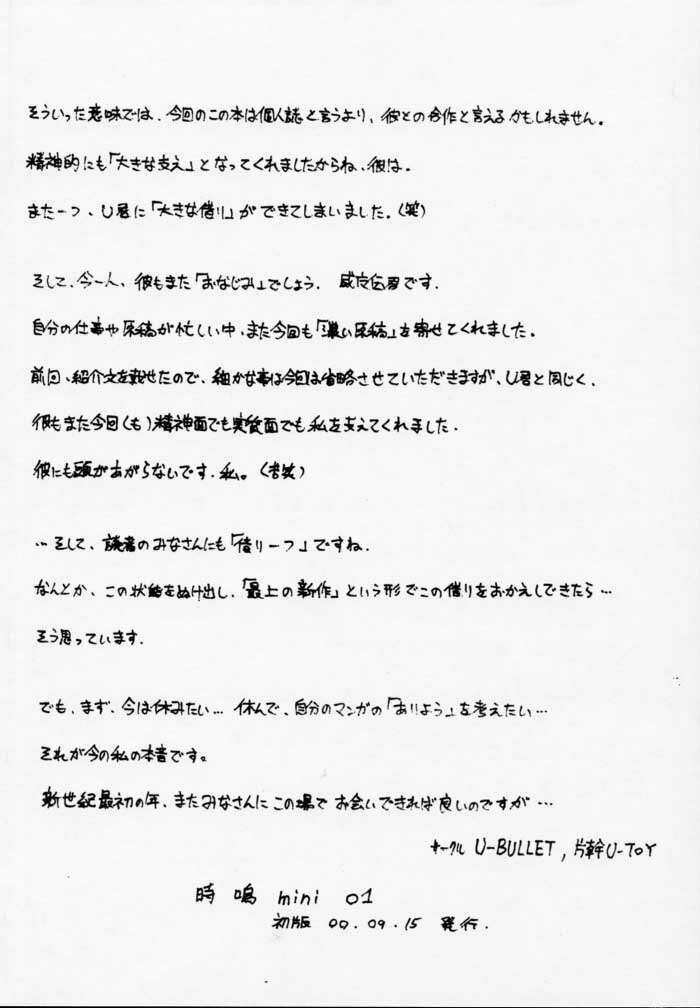 そういった意味では、今回のこの本は個人誌と言うより、彼との合作と言えるかもしれません。
精神的にも「大きな支え」となってくれましたからね、彼は。
また一つ、U君に「大きな借り」ができてしまいました。(笑)
そして、今一人、彼もまた「おなじみ」でしょう。 です。
自分の仕事や原稿が忙しい中、また今回も「濃い原稿」を寄せてくれました。
前回、紹介文を載せたので、細かな事は今回は省略させていただきますが、U君と同じく、
彼もまた今回(も)精神面でも実質面でも私を支えてくれました。
彼にも頭があがらないです、私。(苦笑)
…そして、読者のみなさんにも「借り一つ」ですね。
なんとか、この状態をぬけ出し、「最上の新作」という形でこの借りをおかえしできたら…
そう思っています。
でも、まず、今は休みたい… 休んで、自分のマンガの「ありよう」を考えたい…
それが今の私の本音です。
新世紀最初の年、またみなさんにこの場でお会いできれば良いのですが…
サークル U-BULLET, 片幹U-TOY
時鳴 mini 01
初版 00.09.15 発行.